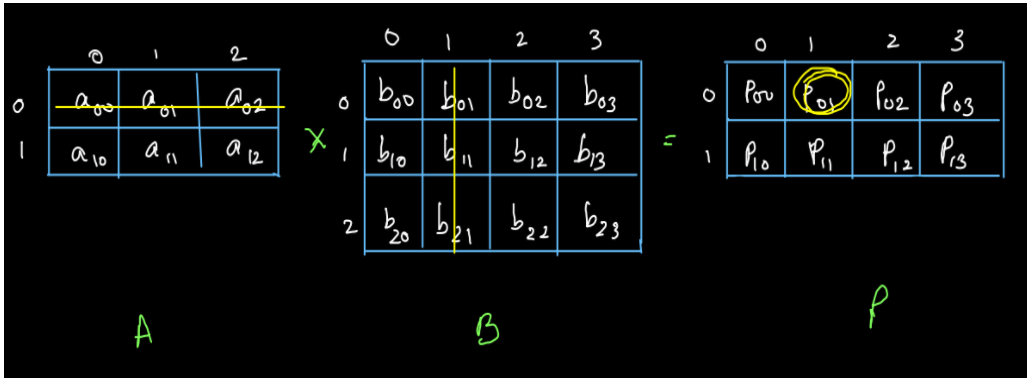 0 1 2
0 a00 a01 a02
1 a10 a11 a12
×
0 1 2 3
0 b00 b01 b02 b03
1 b10 b11 b12 b13
2 b20 b21 b22 b23
=
0 1 2 3
0 P00 P01 P02 P03
1 P10 P11 P12 P13
A B P